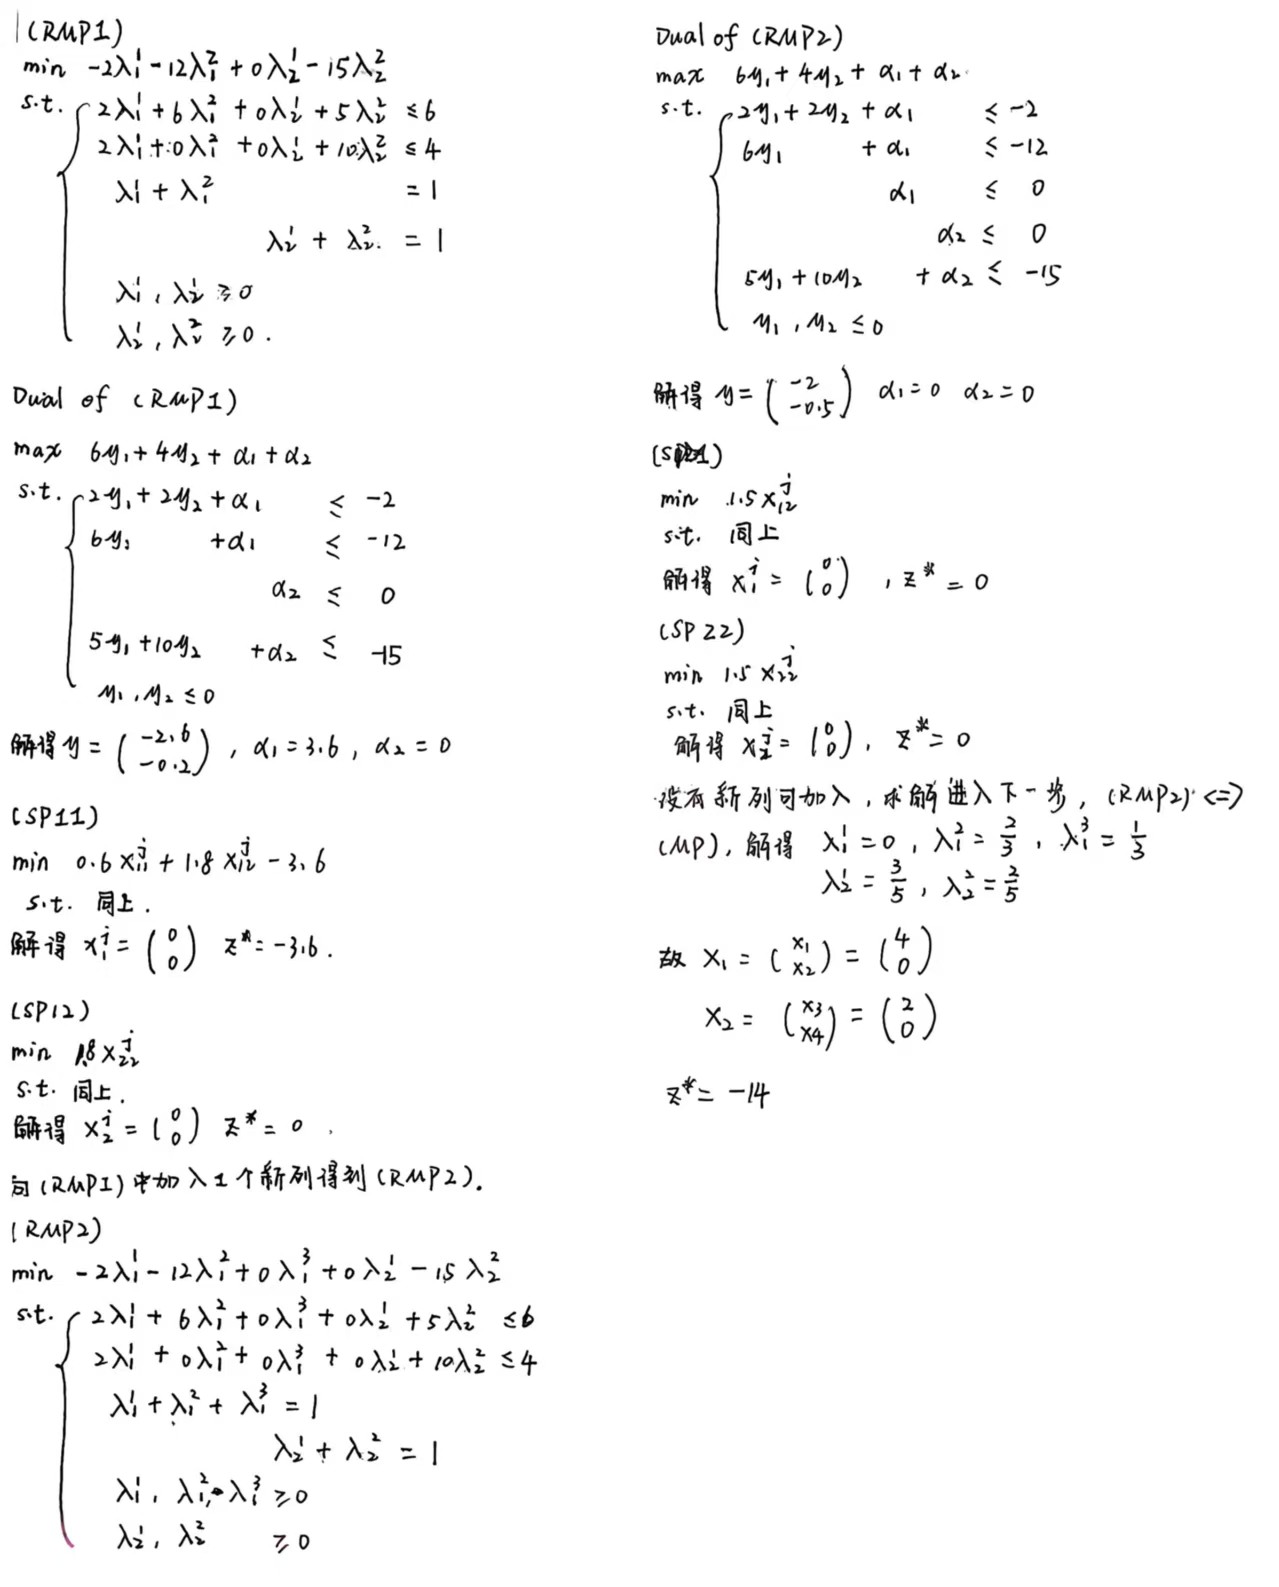 (RMP1)
min -2λ₁¹ - 12λ₁² + 0λ₂¹ - 15λ₂²
s.t. { 2λ₁¹ + 6λ₁² + 0λ₂¹ + 5λ₂² ≤ 6
2λ₁¹ + 0λ₁² + 0λ₂¹ + 10λ₂² ≤ 4
λ₁¹ + λ₁² = 1
λ₂¹ + λ₂² = 1
λ₁¹, λ₂¹ ≥ 0
λ₂¹, λ₂² ≥ 0.
Dual of (RMP1)
max 6y₁ + 4y₂ + α₁ + α₂
s.t. { 2y₁ + 2y₂ + α₁ ≤ -2
6y₁ + α₁ ≤ -12
α₂ ≤ 0
5y₁ + 10y₂ + α₂ ≤ -15
y₁, y₂ ≤ 0
解得 y = (-2.6 -0.2), α₁ = 3.6, α₂ = 0
(SP11)
min 0.6x₁₁ʲ + 1.8x₁₂ʲ - 3.6
s.t. 同上.
解得 x₁ʲ = (0 0) z* = -3.6.
(SP12)
min 1.8x₂₂ʲ
s.t. 同上.
解得 x₂ʲ = (0 0) z* = 0.
向(RMP1)中加入1个新列得到(RMP2).
(RMP2)
min -2λ₁¹ - 12λ₁² + 0λ₁³ + 0λ₂¹ - 15λ₂²
s.t. { 2λ₁¹ + 6λ₁² + 0λ₁³ + 0λ₂¹ + 5λ₂² ≤ 6
2λ₁¹ + 0λ₁² + 0λ₁³ + 0λ₂¹ + 10λ₂² ≤ 4
λ₁¹ + λ₁² + λ₁³ = 1
λ₂¹ + λ₂² = 1
λ₁¹, λ₁², λ₁³ ≥ 0
λ₂¹, λ₂² ≥ 0
Dual of (RMP2)
max 6y₁ + 4y₂ + α₁ + α₂
s.t. { 2y₁ + 2y₂ + α₁ ≤ -2
6y₁ + α₁ ≤ -12
α₁ ≤ 0
α₂ ≤ 0
5y₁ + 10y₂ + α₂ ≤ -15
y₁, y₂ ≤ 0
解得 y = (-2 -0.5) α₁ = 0 α₂ = 0
min 1.5x₁₂ʲ
s.t. 同上
解得 x₁ʲ = (0 0), z* = 0
(SP22)
min 1.5x₂₂ʲ
s.t. 同上
解得 x₂ʲ = (0 0), z* = 0
没有新列可加入, 求解进入下一步, (RMP2) <=>
(MP), 解得 λ₁¹ = 0, λ₁² = 2/3, λ₁³ = 1/3
λ₂¹ = 3/5, λ₂² = 2/5
故 X₁ = (x₁ x₂) = (4 0)
X₂ = (x₃ x₄) = (2 0)
z* = -14